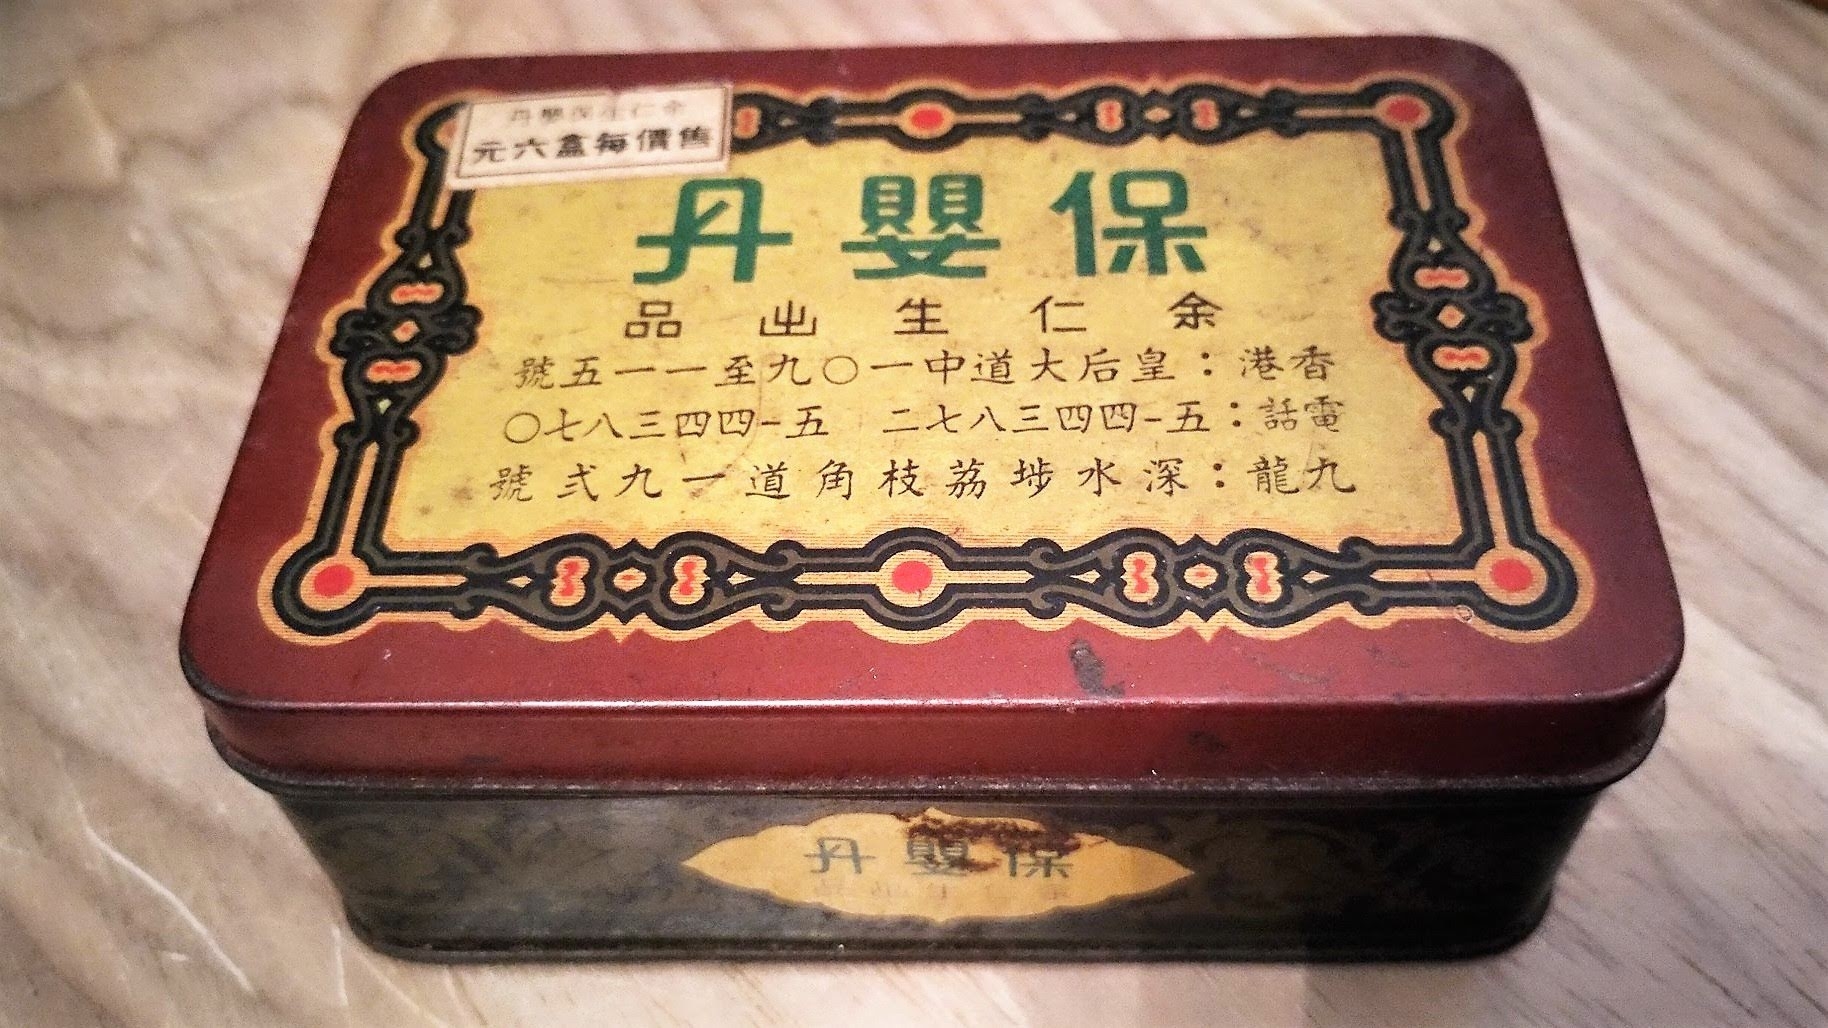 余仁生保嬰丹
售價每盒六元
保嬰丹
余仁生出品
香港：皇后大道中一〇九至一一五號
電話：五-四四三八七二 五-四四三八七〇
九龍：深水埗荔枝角道一九弍號
保嬰丹